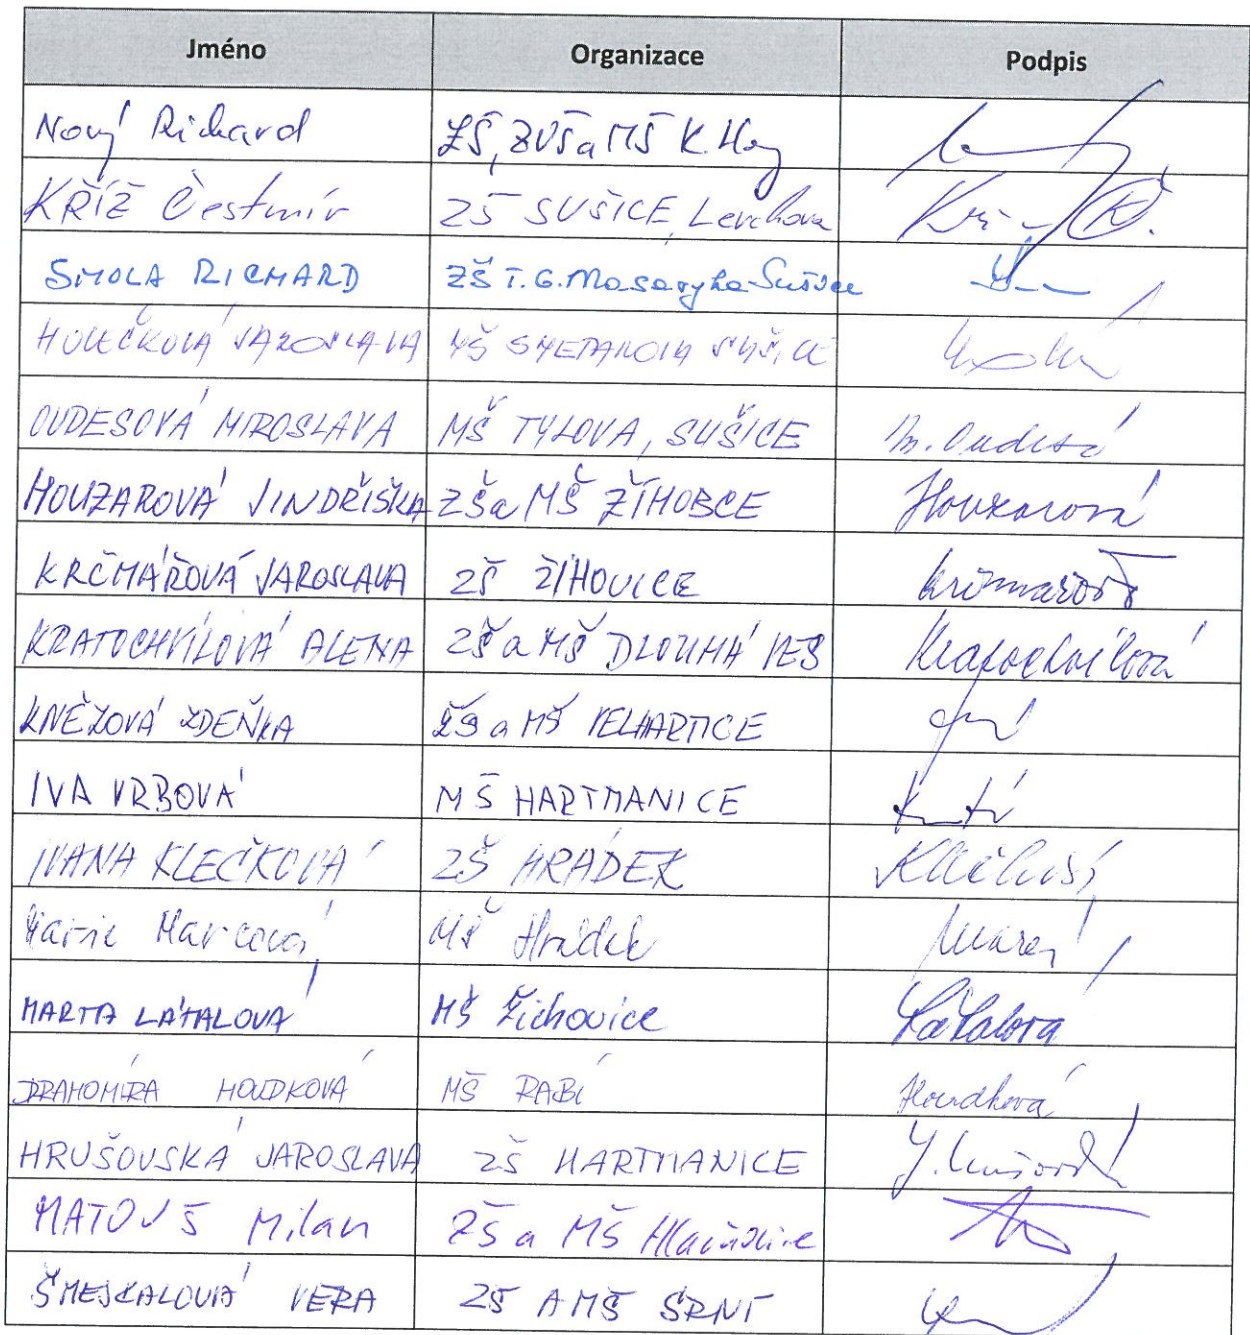 Jméno Organizace Podpis
Nový Richard ZŠ, ZUŠ a MŠ K. Hory
KŘÍŽ Čestmír ZŠ SUŠICE, Lerchova
SMOLA RICHARD ZŠ T.G. Masaryka Sušice
HOLEČKOVÁ JAROSLAVA MŠ SMETANOVA SUŠICE
OUDESOVÁ MIROSLAVA MŠ TYLOVA, SUŠICE M. Oudesová
HOUZAROVÁ JINDŘIŠKA ZŠ a MŠ ŽIHOBCE Houzarová
KRČMÁŘOVÁ JAROSLAVA ZŠ ŽIHOVICE Krčmářová
KRATOCHVÍLOVÁ ALENA ZŠ a MŠ DLOUHÁ VES Kratochvílová
KNĚZOVÁ ZDEŇKA ZŠ a MŠ VELHARTICE
IVA VRBOVÁ MŠ HARTMANICE
IVANA KLEČKOVÁ ZŠ HRÁDEK Klečková
Marie Marcová MŠ Hrádek
MARTA LÁTALOVÁ MŠ Žichovice Látalová
DRAHOMÍRA HOUDKOVÁ MŠ RABÍ Houdková
HRUŠOVSKÁ JAROSLAVA ZŠ HARTMANICE J. Hrušovská
MATOUŠ Milan ZŠ a MŠ Hlavňovice
ŠMEJKALOVÁ VĚRA ZŠ A MŠ SRNÍ